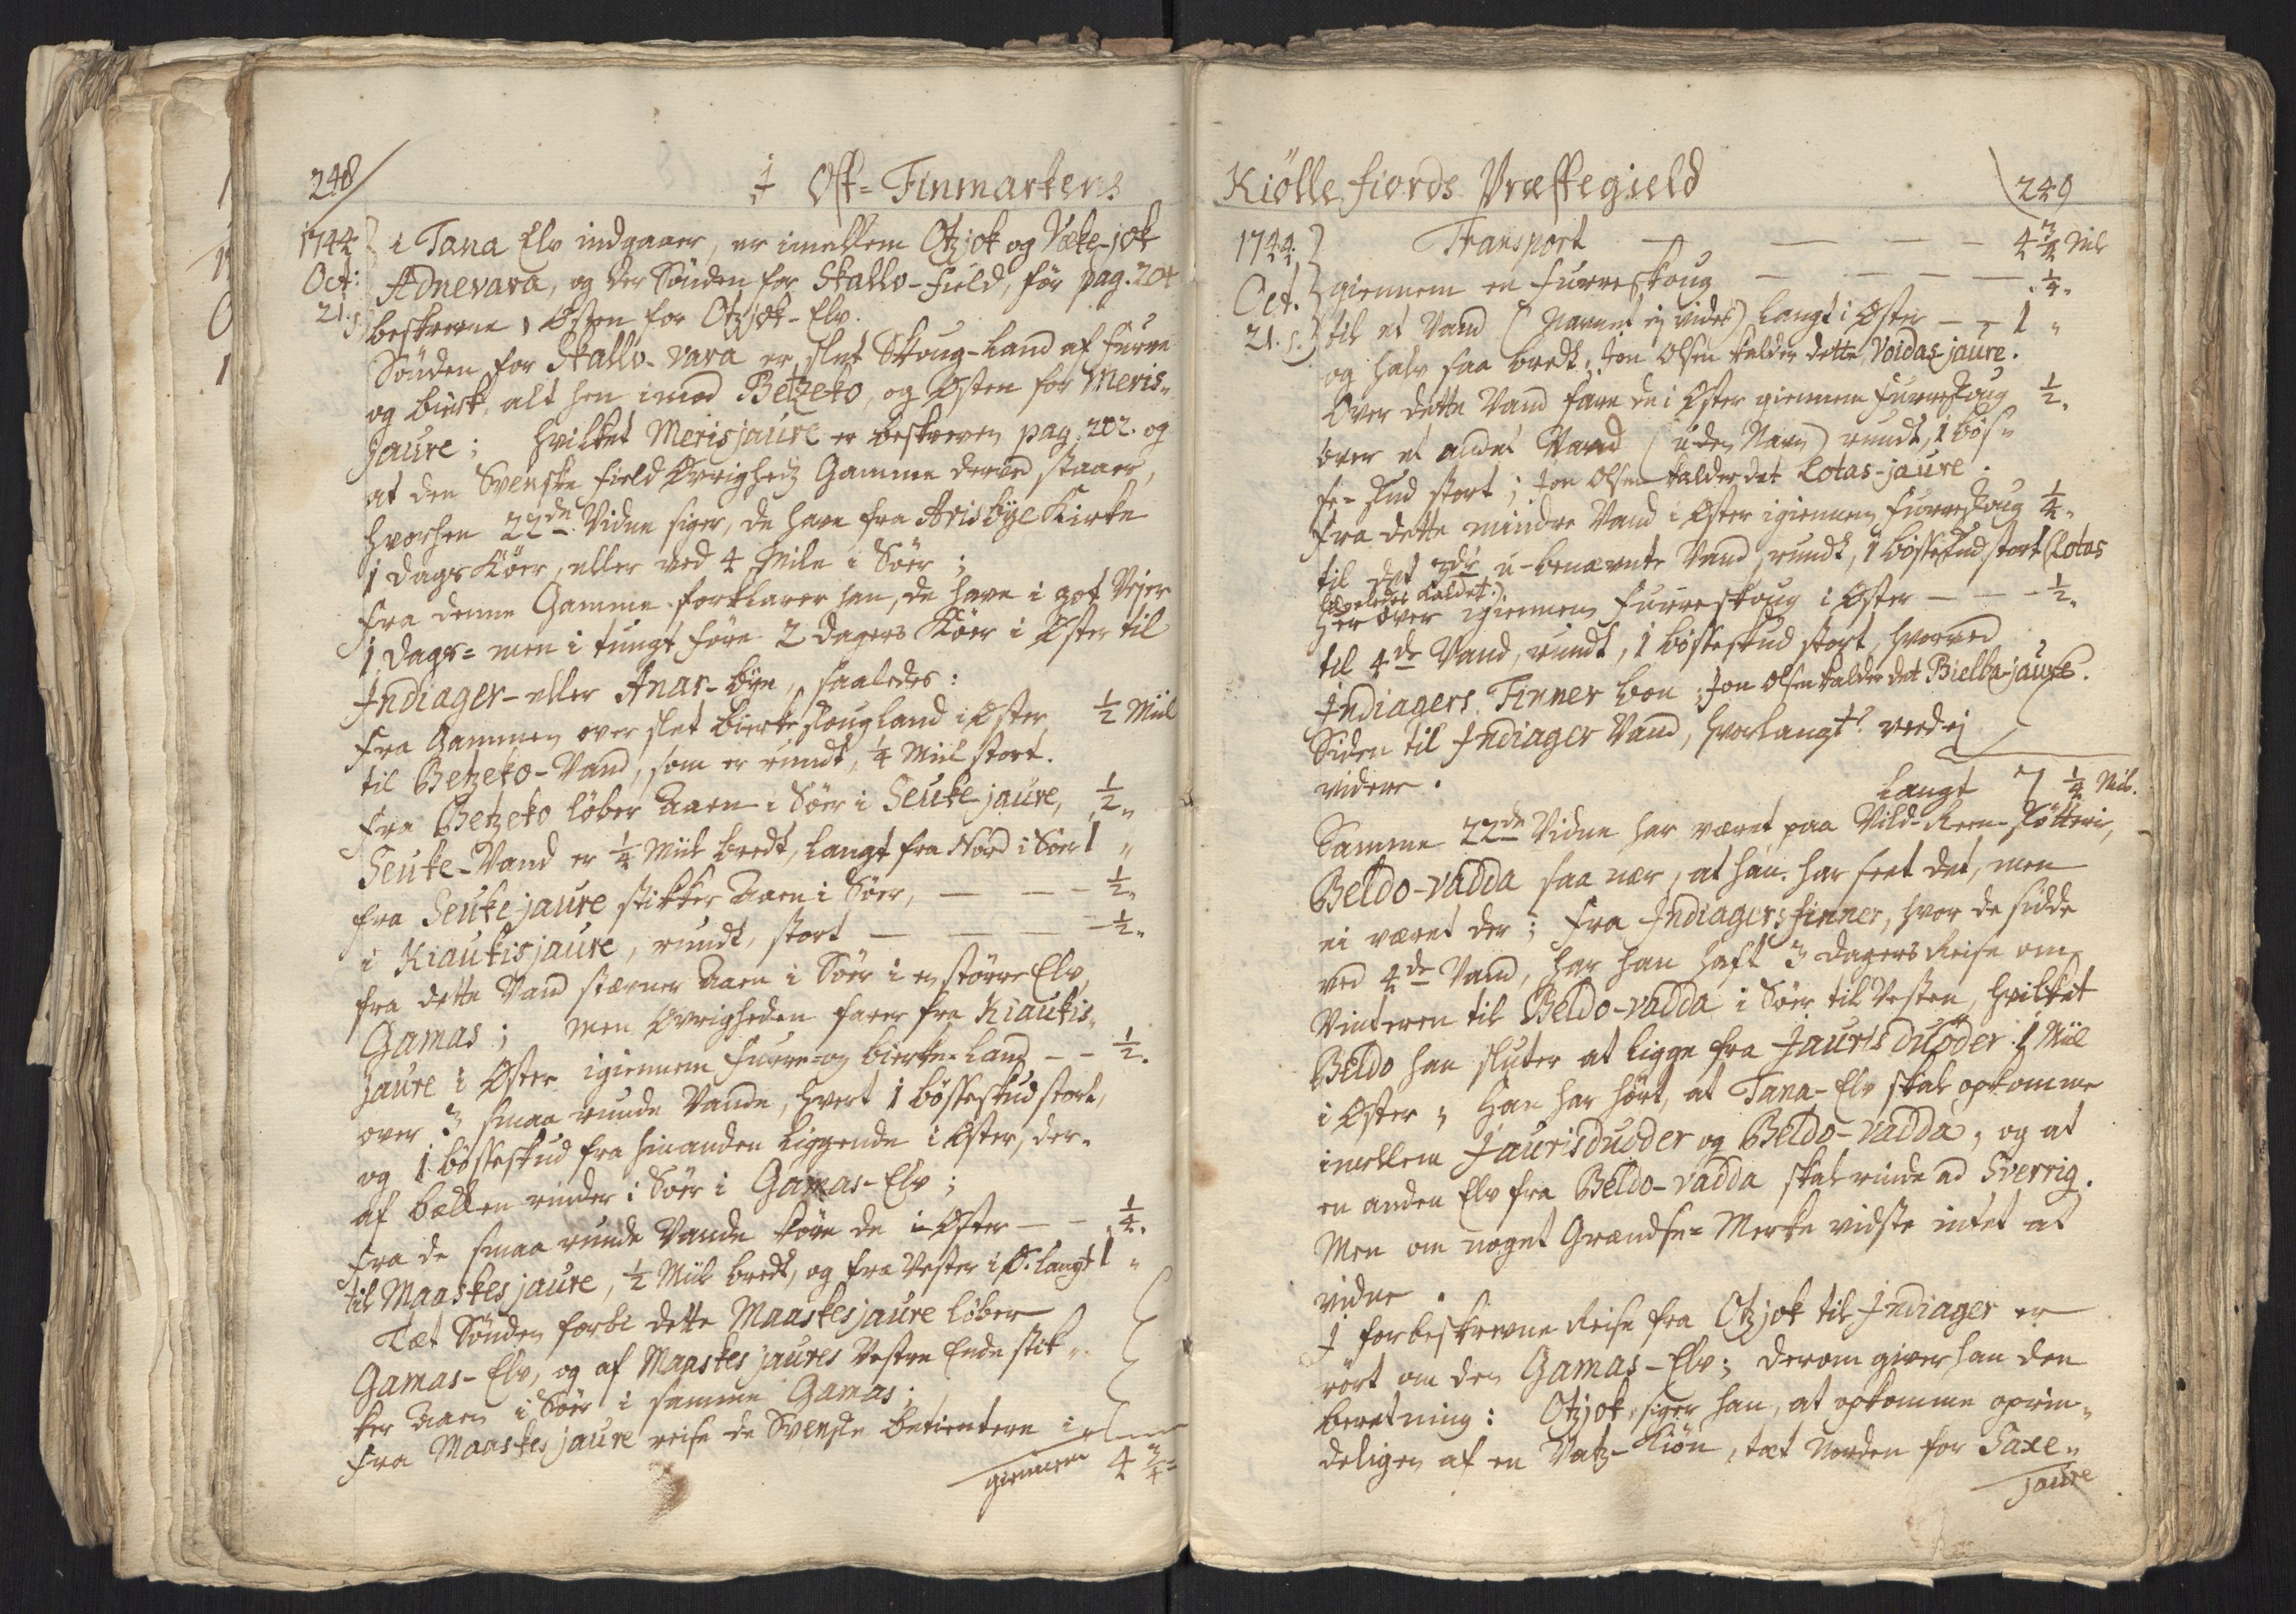 248
i Ost-Finmarkens
1744
Oct:
21. s.
i Tana Elv indgaaer, er imellem Otzjok og Væke-jok
Adnevara, og der Sönden for Stallo-Field, för pag. 204
beskrevne, Østen for Otzjok-Elv.
Sönden for Stallo-vara er slet Skoug-Land af Furre
og birk, alt hen imod Betzeko, og Østen for Meris-
jaure; hvilket Merisjaure er beskreven pag. 202. og
at den Svenske Field Øvrigheds Gamme derved staaer,
hvorhen 22de Vidne siger, de have fra Arisbye Kirke
1 Dags Kör, eller ved 4 Mile i Söer;
Fra denne Gamme forklarer han, de have i got Vejer
1 Dags- men i tungt före 2 Dagers Kör i Øster til
Indiager- eller Anar-bye, saaledes:
Fra Gammen over slet birke skougland i Øster ½ Miil
til Betzeko-Vand, som er rundt, ¼ Miil stort.
Fra Betzeko löber Aaen i Söer i Seuke-jaure, ½ "
Seuke-Vand er ¼ Miil bredt, langt fra Nord i Söer 1 "
fra Seukejaure stikker Aaen i Söer, — — — ½ "
i Kiaukisjaure, rundt, stort — — — ½ "
fra dette Vand stævner Aaen i Söer i en större Elv,
Gamas; men Øvrigheden farer fra Kiaukis-
jaure i Øster igiennem Furre- og birke-Land — — ½ "
over 3 smaa runde Vande, hvert 1 bösseskud stort,
og 1 bösseskud fra hinanden liggende i Øster, der-
af bækken rinder i Söer i Gamas-Elv;
Fra de smaa runde Vande köre de i Øster — — ¼ "
til Maaskesjaure, ½ Miil bredt, og fra Vester i Ø. langt 1 "
Tæt Sönden forbi dette Maaskesjaure löber
Gamas-Elv, og af Maaskesjaures Vestre Ende stik-
ker Aaen i Söer i samme Gamas;
Fra Maaskesjaure reise de Svenske betientere i
giennem 4 ¾ "
Kiöllefiords Præstegield
249
1744.
Oct.
21. s.
Transport — — — — 4 ¾ Mil
giennem en Furreskoug — — — — ¼ "
til et Vand (Navnet ej vides) langt i Øster — — 1 "
og halv saa bredt; Jon Olsen kalder dette Voidas-jaure.
Over dette Vand fare de i Øster giennem Furreskoug ½ "
over et andet Vand (uden Navn) rundt, 1 bös-
se-skud stort; Jon Olsen kalder det Lotas-jaure.
Fra dette mindre Vand i Øster igiennem Furreskoug ¼ "
til det 3die u-benævnte Vand rundt, 1 bösseskud stort (Lotas
ligeledes kaldet.)
Her over igiennem Furreskoug i Øster — — — ½ "
til 4de Vand, rundt, 1 bösseskud stort, hvorved
Indiagers Finner boe; Jon Olsen kalder det Bielba-jaure.
Siden til Indiager Vand, hvorlangt? veed ej
videre.
Langt 7 ¼ Mil.
Samme 22de Vidne har været paa Vild-Reen-skötterie,
Beldo-vadda saa nær, at han har seet det, men
ei været der; Fra Indiagersfinner, hvor de sidde
ved 4de Vand, har han haft 3 Dagers Reise om
Vinteren til Beldo-vadda i Söer til Vesten, hvilket
Beldo han sluter at ligge fra Jauris duöder 1 Miil
i Øster; Han har hört, at Tana-Elv skal opkomme
imellem Jaurisduoder og Beldo-vadda, og at
en anden Elv fra Beldo-vadda skal rinde ad Sverrig.
Men om noget Grændse-Merke vidste intet at
vidne.
I forbeskrevne Reise fra Otzjok til Indiager er
rört om den Gamas-Elv; derom giver han den
beretning: Otzjok, siger han, at opkomme oprin-
deligen af en Vatz-Kiön, tæt Norden for Saxe-
jaure